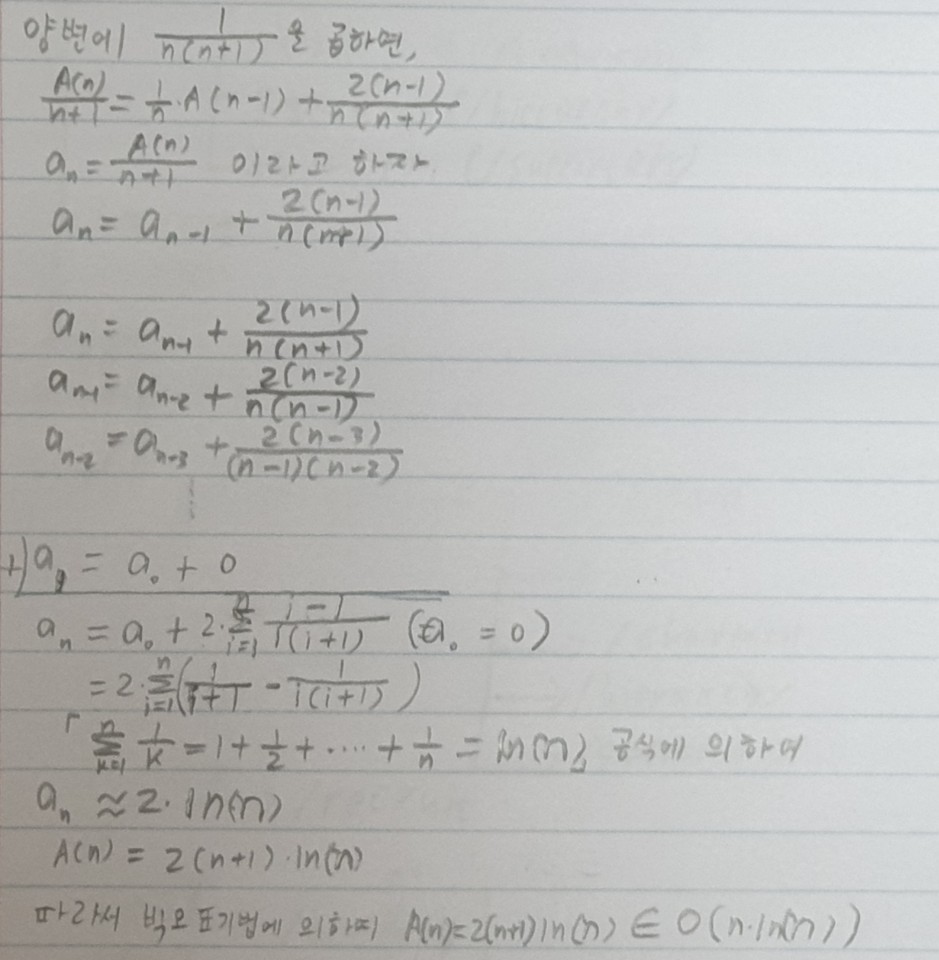 양변에 1/n(n+1) 을 곱하면,
A(n)/n+1 = 1/n · A(n-1) + 2(n-1)/n(n+1)
aₙ = A(n)/n+1 이라고 하자.
aₙ = aₙ₋₁ + 2(n-1)/n(n+1)
aₙ = aₙ₋₁ + 2(n-1)/n(n+1)
aₙ₋₁ = aₙ₋₂ + 2(n-2)/n(n-1)
aₙ₋₂ = aₙ₋₃ + 2(n-3)/(n-1)(n-2)
⋮
+) a₁ = a₀ + 0
aₙ = a₀ + 2·∑ⁿᵢ₌₁ i-1/i(i+1) (a₀ = 0)
= 2·∑ⁿᵢ₌₁(1/i+1 - 1/i(i+1))
「∑ⁿₖ₌₁ 1/k = 1 + 1/2 + ···· + 1/n = ln(n)」 공식에 의하여
aₙ ≈ 2·ln(n)
A(n) = 2(n+1)·ln(n)
따라서 빅오 표기법에 의하여 A(n)=2(n+1)ln(n) ∈ O(n·ln(n))